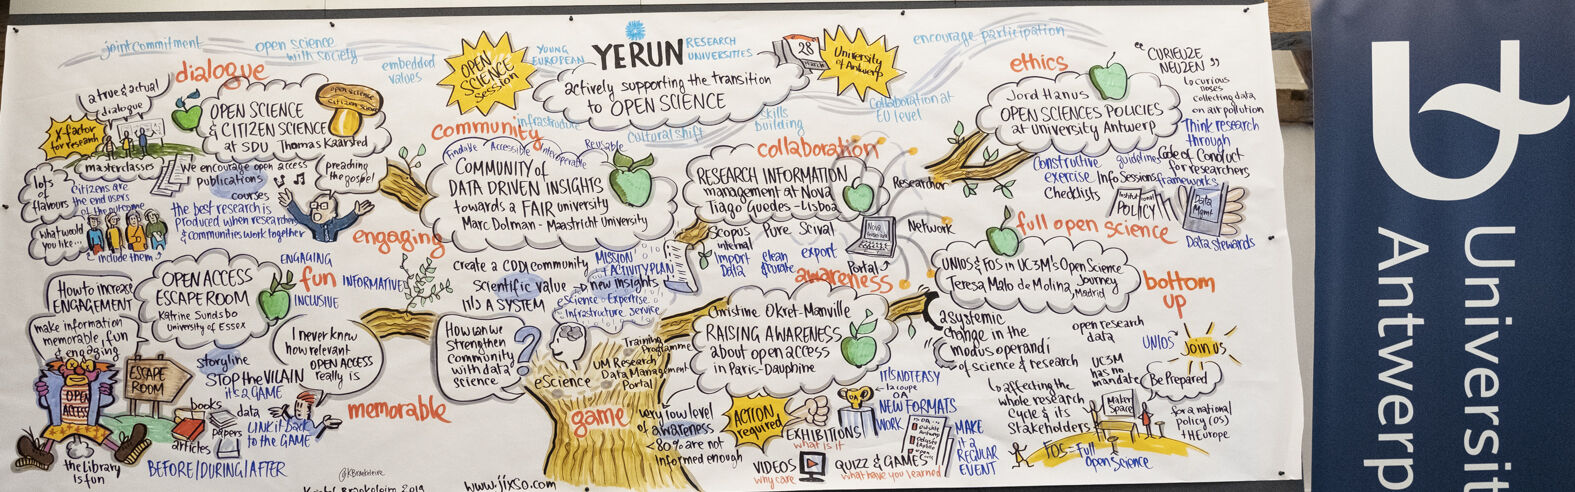 joint commitment
open science
with society
embedded
values
OPEN
SCIENCE
session
YOUNG
EUROPEAN
YERUN
RESEARCH
UNIVERSITIES
actively supporting the transition
to OPEN SCIENCE
28
March
University
of Antwerp
encourage participation
infrastructure
cultural shift
skills
building
Collaboration at
EU level
dialogue
a true & actual
dialogue
X-factor
for research
OPEN SCIENCE
& CITIZEN SCIENCE
at SDU Thomas Kaarsted
open science
citizen science
masterclasses
We encourage open access
publications
courses
preaching
the gospel
lots
flavours
citizens are
the end users
of the outcome
the best research is
produced when researchers
& communities work together
what would
you like...
include them
engaging
community
Findable Accessible Interoperable Reusable
COMMUNITY of
DATA DRIVEN INSIGHTS
towards a FAIR university
Marc Dolman - Maastricht University
Create a CDDI community
Scientific value
IT'S A SYSTEM
MISSION
+ ACTIVITY PLAN
new insights
eScience - Expertise
Infrastructure service
How can we
strengthen
community
with data
science
?
eScience
Training
Programme
UM Research
Data Management
Portal
collaboration
RESEARCH INFORMATION
management at Nova
Tiago Guedes - Lisboa
Researcher
Network
Portal
Scopus
internal
Import
Data
Pure
clean
Scival
export
awareness
Christine Okret-Manville
RAISING AWARENESS
about open access
in Paris-Dauphine
very low level
of awareness
<80% are not
informed enough
ACTION
required
EXHIBITIONS
what is it
VIDEOS
why care
QUIZZ & GAMES
what have you learned
IT IS NOT EASY
la coupe
OA
NEW FORMATS
WORK
MAKE
it a
REGULAR
EVENT
ethics
Jord Hanus
OPEN SCIENCES POLICIES
at University Antwerp
"CURIEUZE
NEUZEN"
curious
noses
collecting data
on air pollution
Think research
through
Constructive
exercise
Checklists
guidelines
Info Sessions
Code of Conduct
for researchers
frameworks
Institutional
POLICY
Data
Mgmt
Data stewards
full open science
UNIOS & FOS in UC3M's Open Science
Journey
Teresa Malo de Molina, Madrid
bottom
up
a systemic
change in the
modus operandi
of science & research
affecting the
whole research
cycle & its
stakeholders
open research
data
UC3M
has no
mandate
UNIOS
Join us
Be Prepared
for a national
policy (OS)
+ Europe
Maker
Space
FOS = Full
Open Science
How to increase
ENGAGEMENT
OPEN ACCESS
ESCAPE ROOM
Katrine Sundsbo
University of Essex
ENGAGING
fun
INFORMATIVE
INCLUSIVE
make information
memorable, fun
& engaging
ESCAPE
ROOM
OPEN
ACCESS
the library
is fun
storyline
STOP the VILAIN
it's a GAME
I never knew
how relevant
OPEN ACCESS
really is
books
papers
articles
data
LINK it back
to the GAME
BEFORE/DURING/AFTER
memorable
game
@KBrankeleire
www.jixso.com
Universit
Antwerp